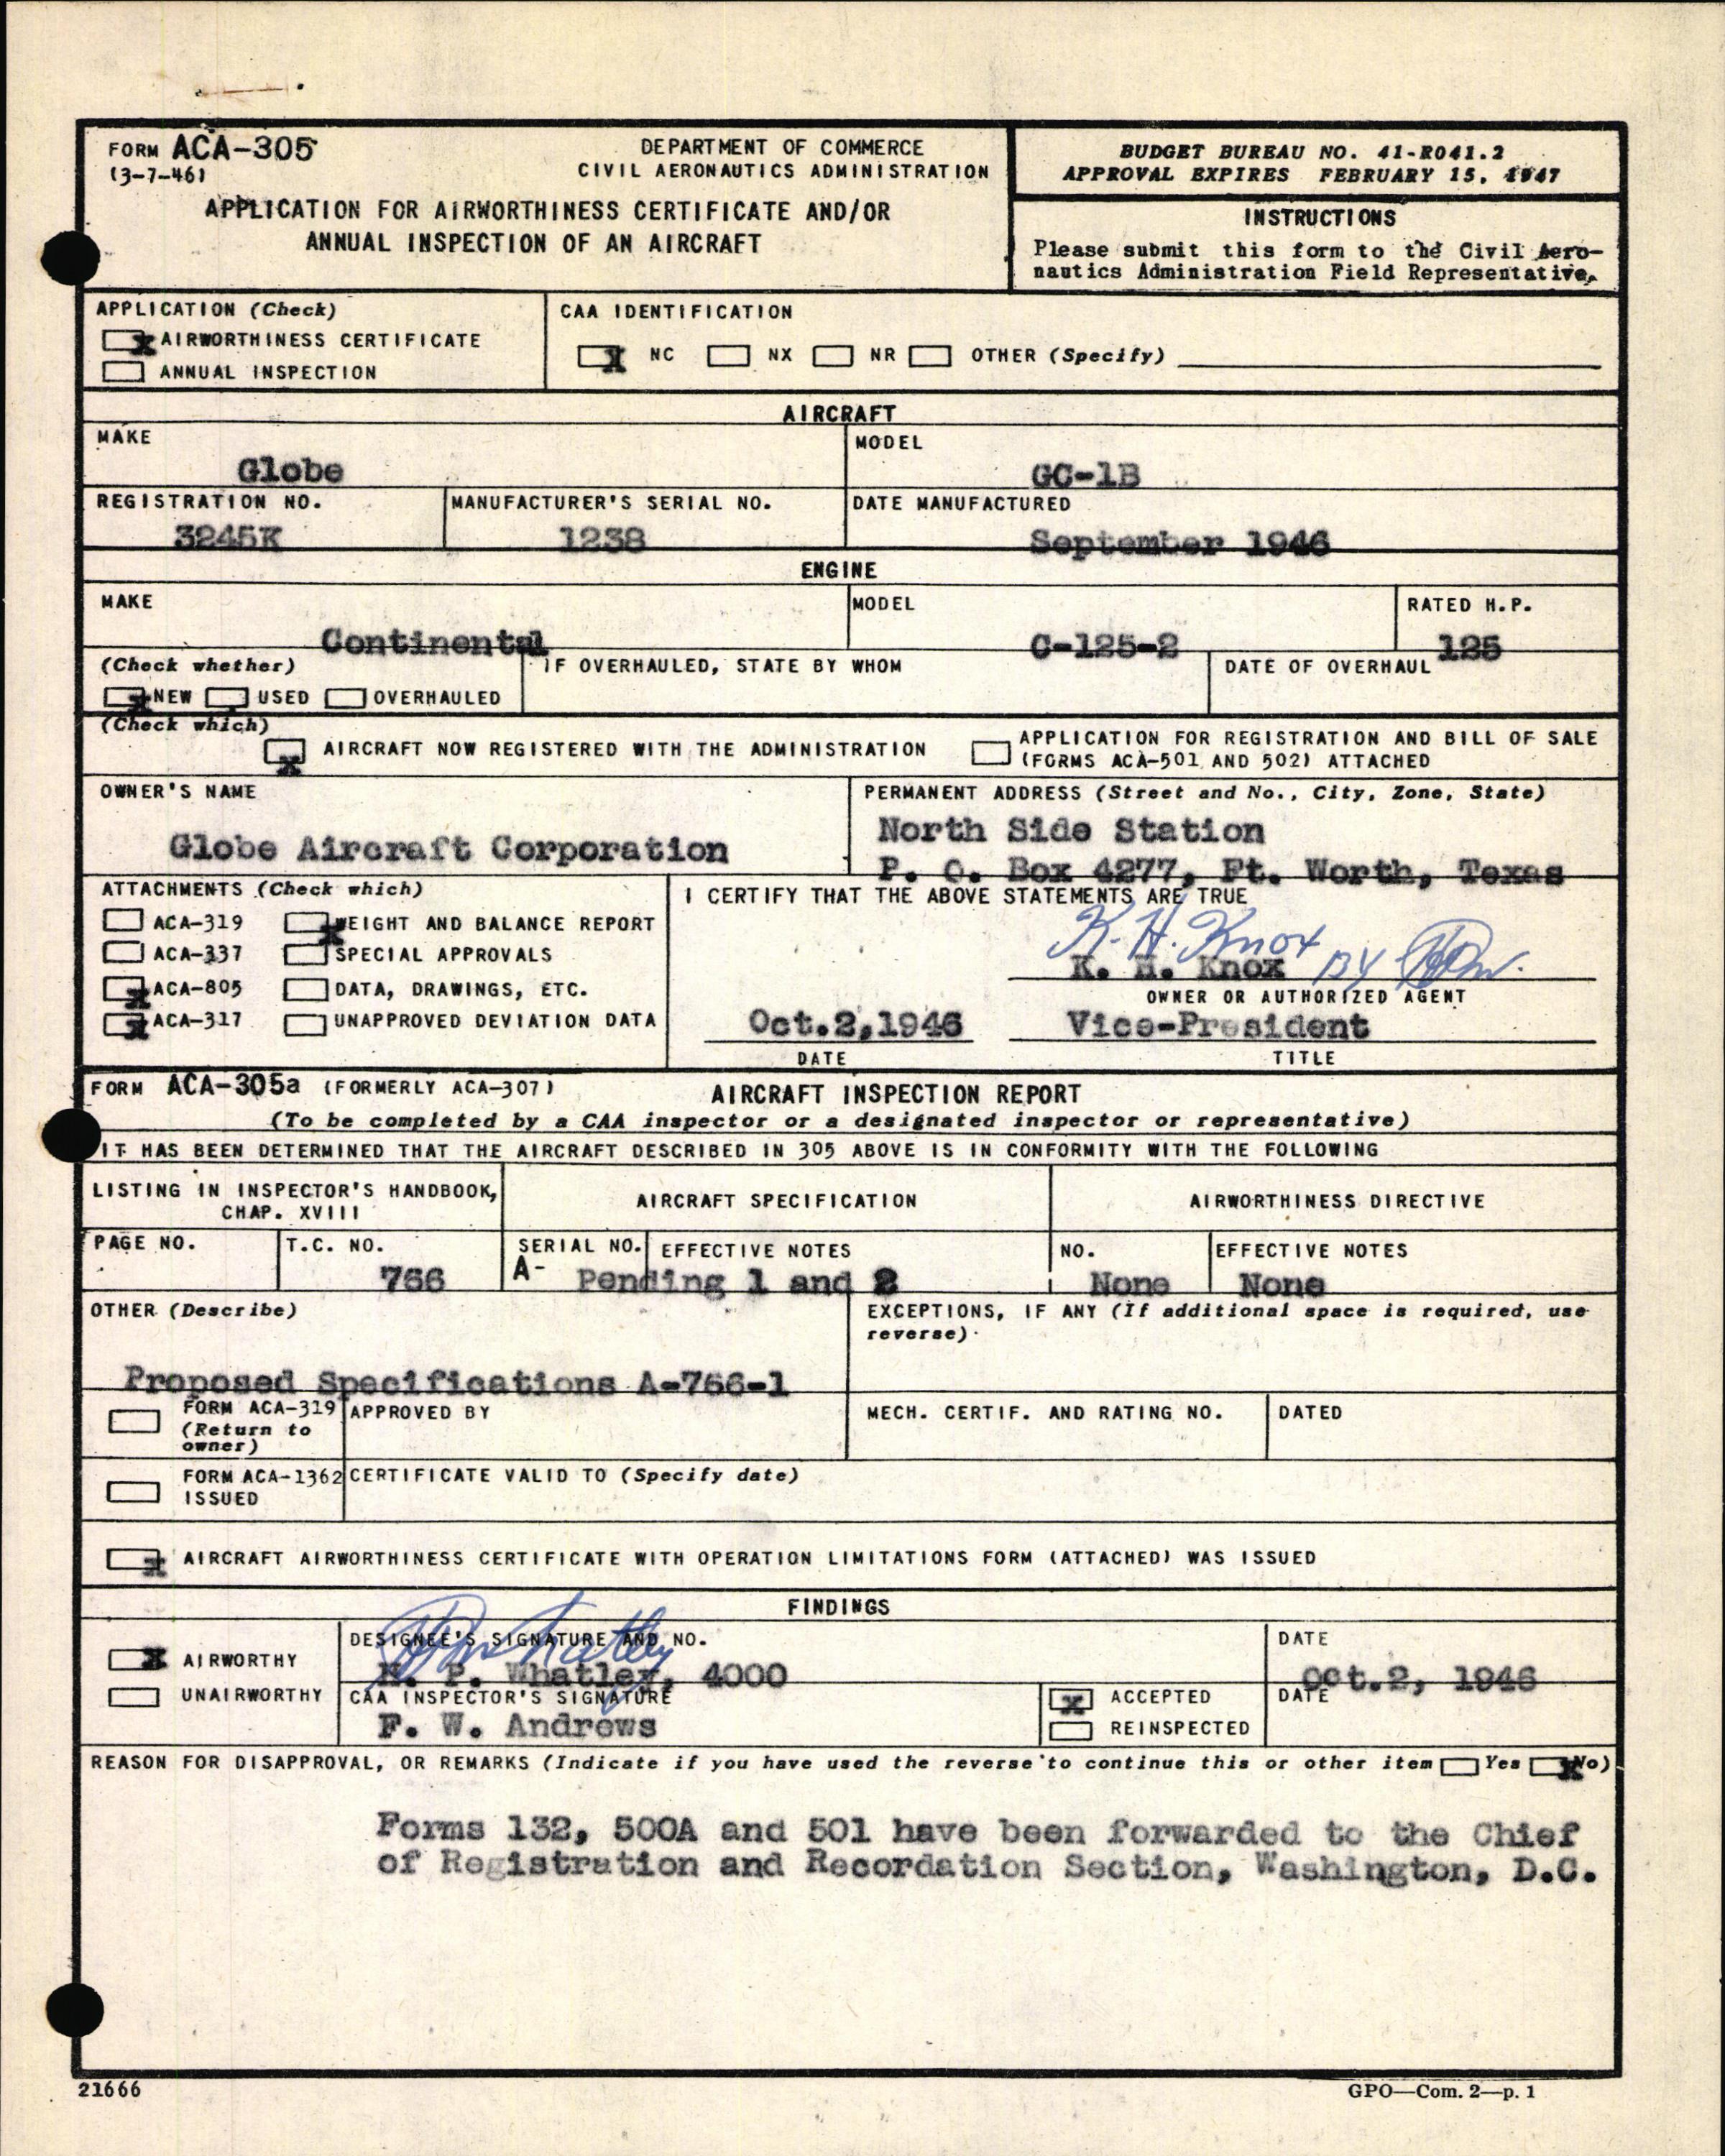 FORM ACA-305
(3-7-46)
DEPARTMENT OF COMMERCE
CIVIL AERONAUTICS ADMINISTRATION
APPLICATION FOR AIRWORTHINESS CERTIFICATE AND/OR
ANNUAL INSPECTION OF AN AIRCRAFT
BUDGET BUREAU NO. 41-R041.2
APPROVAL EXPIRES FEBRUARY 15, 1947
INSTRUCTIONS
Please submit this form to the Civil Aero-
nautics Administration Field Representative.
APPLICATION (Check)
X AIRWORTHINESS CERTIFICATE
ANNUAL INSPECTION
CAA IDENTIFICATION
X NC NX NR OTHER (Specify)
AIRCRAFT
MAKE
Globe
MODEL
GC-1B
REGISTRATION NO.
3245K
MANUFACTURER'S SERIAL NO.
1238
DATE MANUFACTURED
September 1946
ENGINE
MAKE
Continental
MODEL
C-125-2
RATED H.P.
125
(Check whether)
X NEW USED OVERHAULED
IF OVERHAULED, STATE BY WHOM
DATE OF OVERHAUL
(Check which)
X AIRCRAFT NOW REGISTERED WITH THE ADMINISTRATION
APPLICATION FOR REGISTRATION AND BILL OF SALE
(FORMS ACA-501 AND 502) ATTACHED
OWNER'S NAME
Globe Aircraft Corporation
PERMANENT ADDRESS (Street and No., City, Zone, State)
North Side Station
P. O. Box 4277, Ft. Worth, Texas
ATTACHMENTS (Check which)
ACA-319 X WEIGHT AND BALANCE REPORT
ACA-337 SPECIAL APPROVALS
X ACA-805 DATA, DRAWINGS, ETC.
X ACA-317 UNAPPROVED DEVIATION DATA
I CERTIFY THAT THE ABOVE STATEMENTS ARE TRUE
K. H. Knox BY
K. H. Knox
OWNER OR AUTHORIZED AGENT
Oct.2,1946 Vice-President
DATE TITLE
FORM ACA-305a (FORMERLY ACA-307)
AIRCRAFT INSPECTION REPORT
(To be completed by a CAA inspector or a designated inspector or representative)
IT HAS BEEN DETERMINED THAT THE AIRCRAFT DESCRIBED IN 305 ABOVE IS IN CONFORMITY WITH THE FOLLOWING
LISTING IN INSPECTOR'S HANDBOOK,
CHAP. XVIII
AIRCRAFT SPECIFICATION
AIRWORTHINESS DIRECTIVE
PAGE NO.
T.C. NO.
766
SERIAL NO. EFFECTIVE NOTES
A- Pending 1 and 2
NO.
None
EFFECTIVE NOTES
None
OTHER (Describe)
Proposed Specifications A-766-1
EXCEPTIONS, IF ANY (If additional space is required, use
reverse)
FORM ACA-319
(Return to
owner)
APPROVED BY
MECH. CERTIF. AND RATING NO.
DATED
FORM ACA-1362
ISSUED
CERTIFICATE VALID TO (Specify date)
X AIRCRAFT AIRWORTHINESS CERTIFICATE WITH OPERATION LIMITATIONS FORM (ATTACHED) WAS ISSUED
FINDINGS
X AIRWORTHY
UNAIRWORTHY
DESIGNEE'S SIGNATURE AND NO.
Whatley
P. Whatley, 4000
DATE
Oct.2, 1946
CAA INSPECTOR'S SIGNATURE
F. W. Andrews
X ACCEPTED
REINSPECTED
DATE
REASON FOR DISAPPROVAL, OR REMARKS (Indicate if you have used the reverse to continue this or other item Yes X No)
Forms 132, 500A and 501 have been forwarded to the Chief
of Registration and Recordation Section, Washington, D.C.
21666
GPO—Com. 2—p. 1